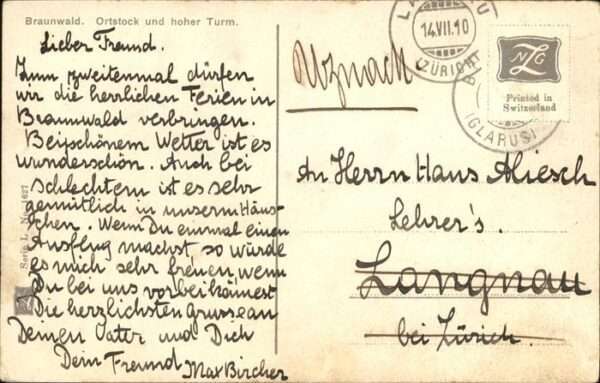 Braunwald. Ortstock und hoher Turm.
Lieber Freund.
Zum zweitenmal dürfen
wir die herrlichen Ferien in
Braunwald verbringen.
Bei schönem Wetter ist es
wunderschön. Auch bei
schlechtem ist es sehr
gemütlich in unserm Häus-
chen. Wenn Du einmal einen
Ausflug machst so würde
es mich sehr freuen wenn
Du bei uns vorbeikämest
Die herzlichsten Grüsse an
Deinen Vater und Dich
Dein Freund Max Bircher
Serie L. No. 1627
Uznach
14.VII.10
(ZÜRICH)
(GLARUS)
NZG
Printed in
Switzerland
An Herrn Hans
Lehrer's.
Langnau
bei Zürich.